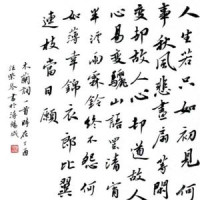 人生若只如初見何
事秋風悲畫扇等閑
變卻故人心卻道故人
心易變驪山語罷清宵
半雨鈴終不怨何
如薄倖錦衣郎比翼
連枝當日願
木蘭詞一首時在丁酉
書於